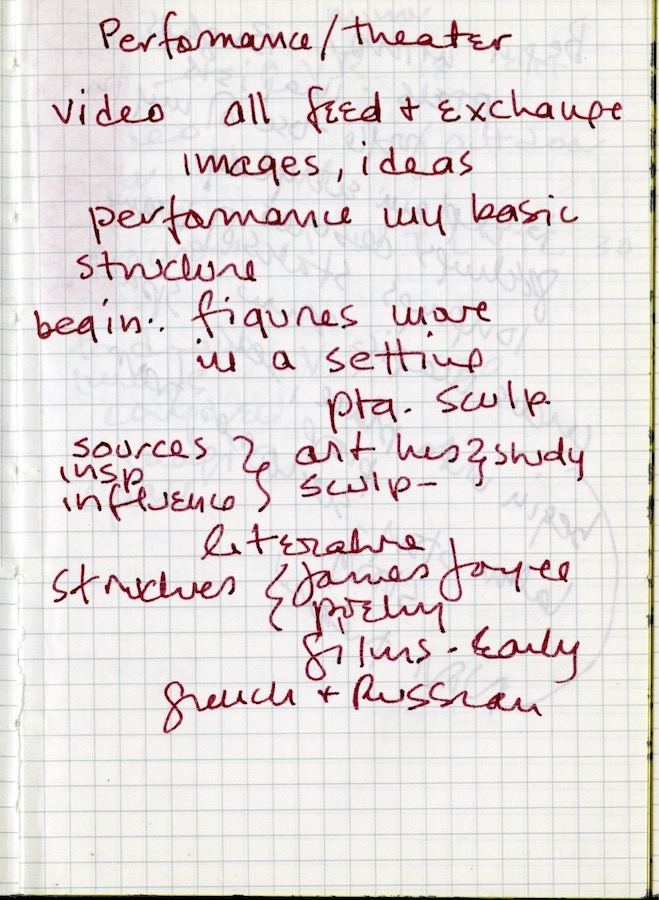 Performance/theater
video all feed + exchange
images, ideas
performance my basic
structure
begin: figures move
in a setting
ptg. sculp.
sources } art his } study
insp
influence } sculp-
literature
structures { James Joyce
{ poetry
films - Early
french + Russian